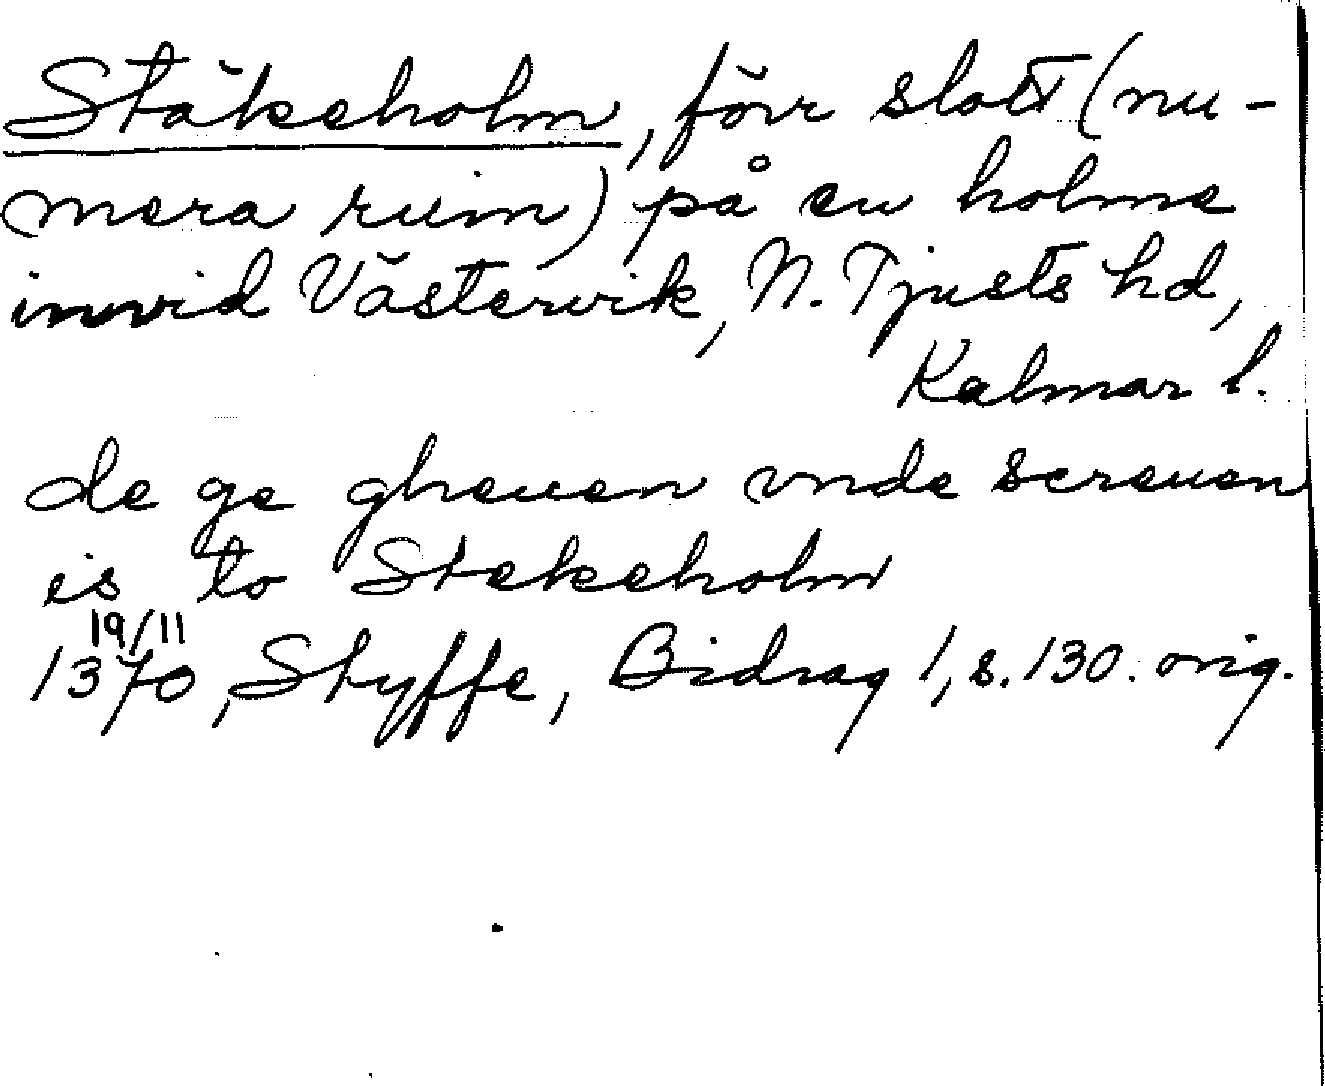 Stäkeholm, förr slott (nu-
mera ruin) på en holme
invid Västervik, N. Tjusts hd,
Kalmar l.
de ge gheuen vnde screuen
is to Stekeholm
19/11
1370, Styffe, Bidrag 1, s. 130. orig.